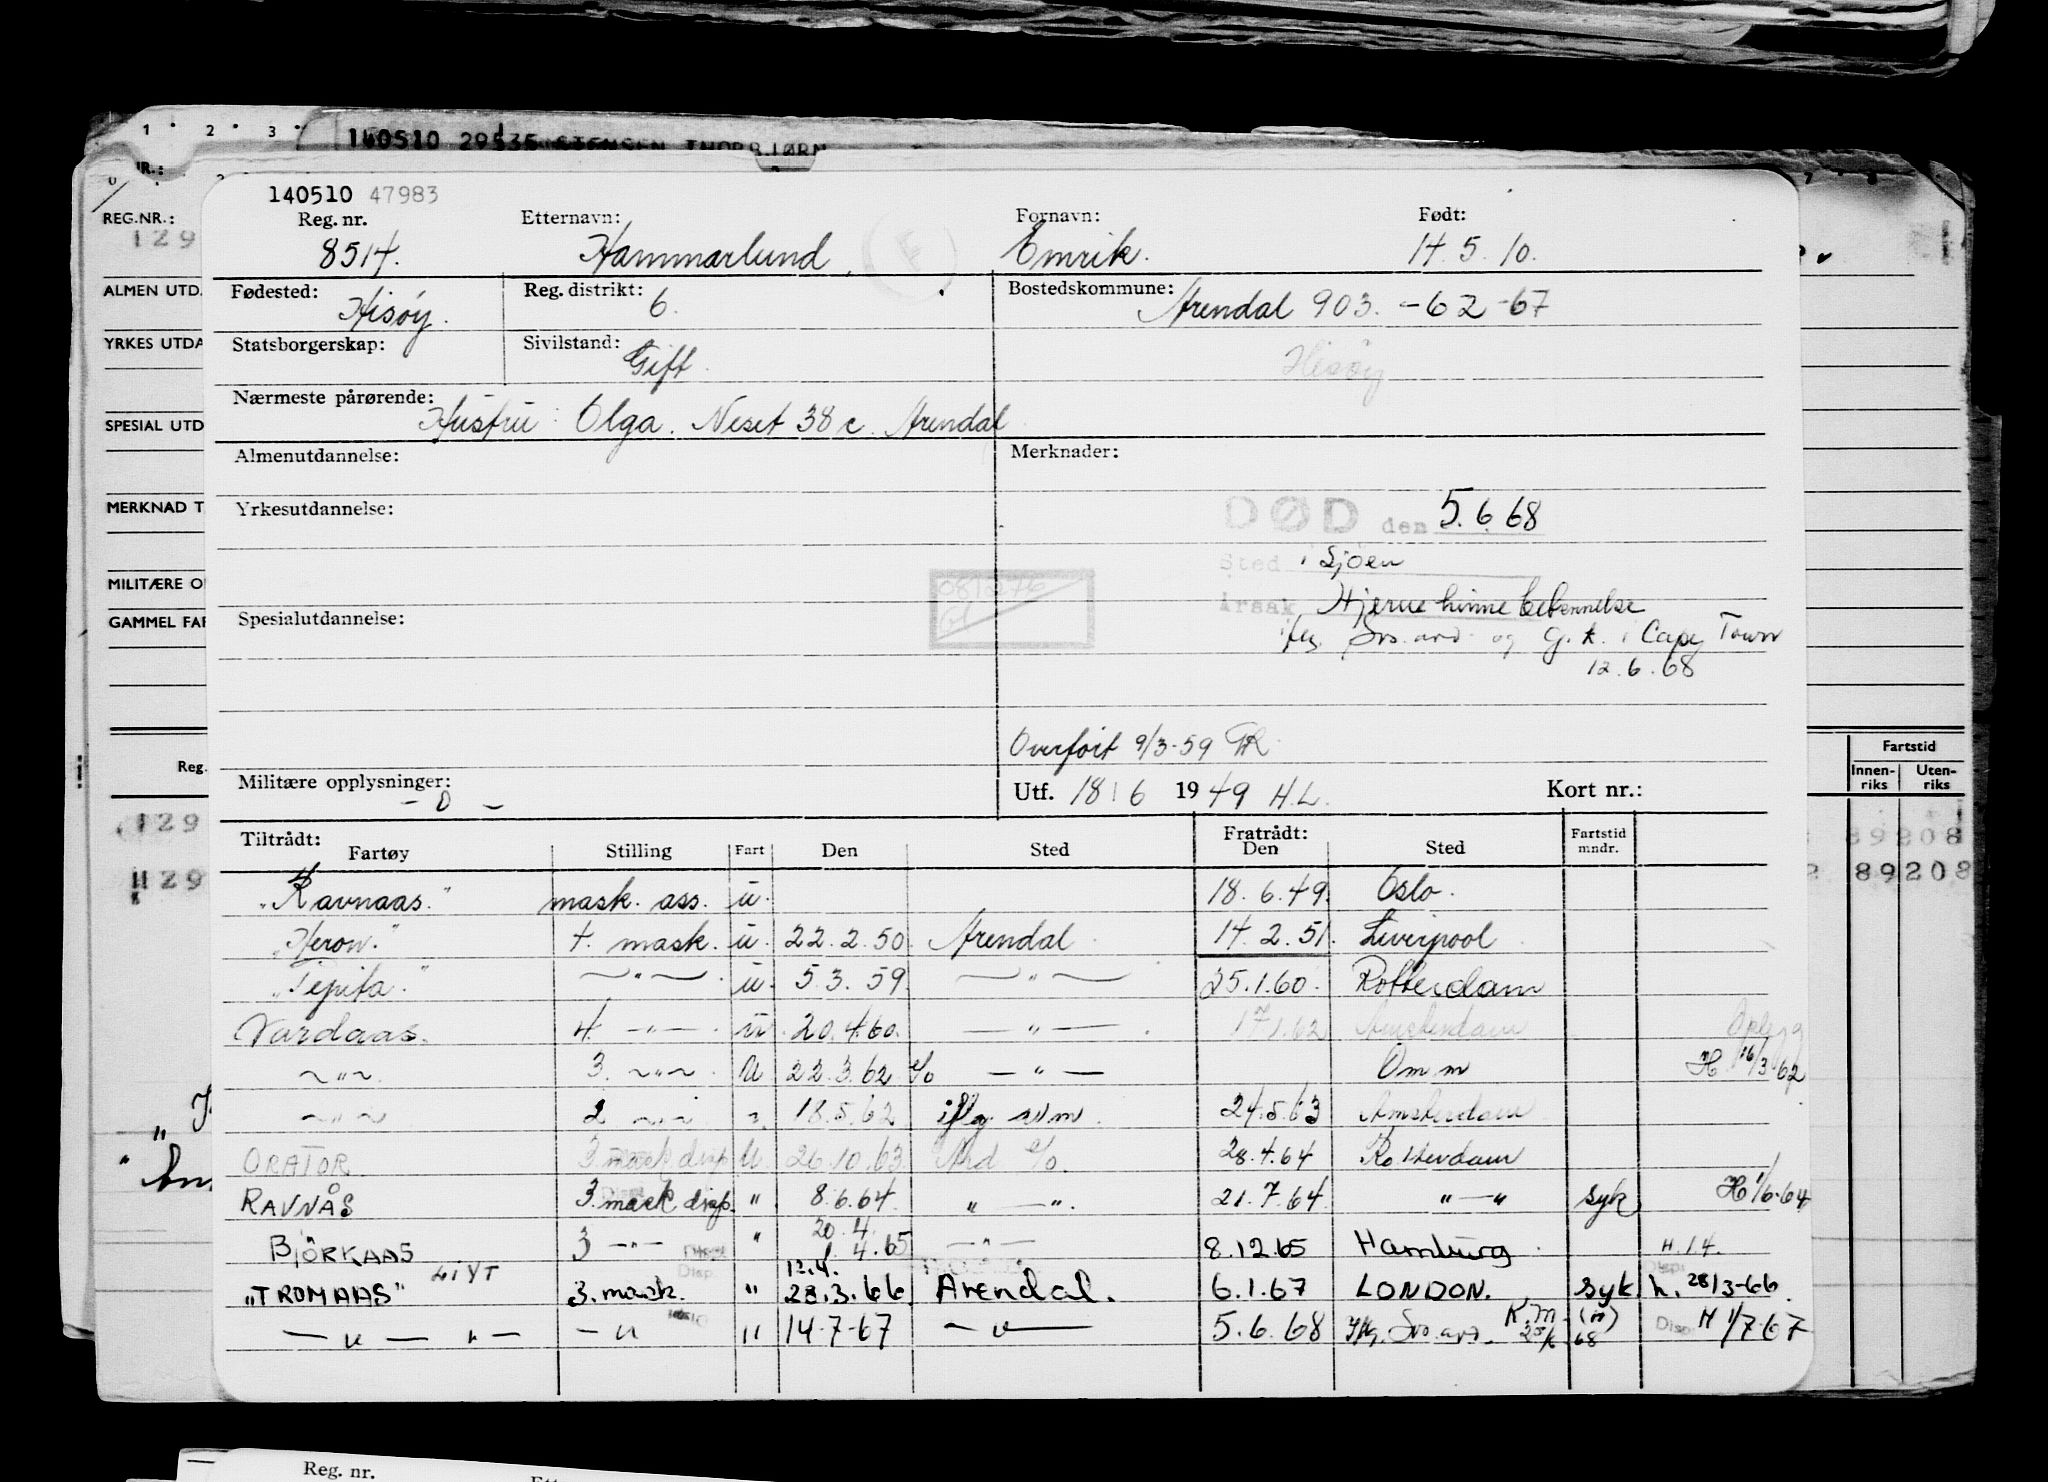 1 2 3
140510 29535 STENSEN THORBJØRN
REG.NR.:
129
ALMEN UTD.
YRKES UTDA
SPESIAL UTD
MERKNAD T
MILITÆRE O
GAMMEL FAR
Reg.
129
129
Fartstid
Innen-riks Uten-riks
89208
89208
140510 47983
Reg. nr. Etternavn: Fornavn: Født:
8514. Hammarlund Emrik. 14.5.10.
Fødested: Hisøy. Reg. distrikt: 6. Bostedskommune: Arendal 903. -62-67
Statsborgerskap: Sivilstand: Gift. Hisøy
Nærmeste pårørende: Hustru: Olga. Neset 38c. Arendal
Almenutdannelse: Merknader:
Yrkesutdannelse: DØD den 5.6.68
Sted i Sjøen
Årsak Hjernehinneblødning
Spesialutdannelse:
iflg. Svs. avd. og g.k. i Cape Town
12.6.68
Overført 9/3-59
Militære opplysninger: - 0 - Utf. 18/6 1949 H.L. Kort nr.:
Tiltrådt: Fratrådt:
Fartøy Stilling Fart Den Sted Den Sted Fartstid mndr.
"Ravnaas." mask. ass. u. 18.6.49. Oslo.
"Heron." 4. mask. u. 22.2.50. Arendal 14.2.51. Liverpool
"Pepita." — " — u. 5.3.59 — " — 25.1.60. Rotterdam
Vardaas. 4. — " — u. 20.4.60. — " — 17.1.62 Amsterdam
— " — 3. — " — u 22.3.62 s/o — " — Omm H 16/3-62
— " — 2 — " — " 18.5.62 iflg 24.5.63 Amsterdam
ORATOR 3 mask disp U 26.10.63 And s/o. 28.4.64 Rotterdam
RAVNÅS 3. mask disp. " 8.6.64 " — ". 21.7.64 " — " syk H 1/6-64
BJÖRKAAS 3 — " — " 20.4. 1.4.65 — " — 8.12.65 Hamburg H.1.4.
"TROMAAS" 3. mask. " 12.4. 28.3.66 Arendal. 6.1.67 LONDON. syk h. 28/3-66
— " — " — — " " 14-7-67 — " — 5.6.68 Iflg. Svs avd. 68 Disp H 1/7-67
Reg. nr.